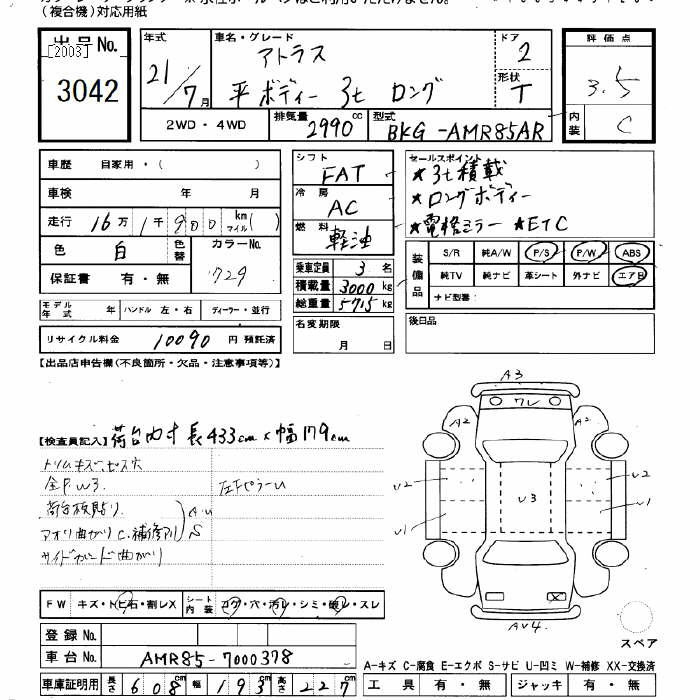 (複合機)対応用紙
出品No.
[2003]
3042
年式 21/7月
車名・グレード アトラス
平ボディー 3t ロング
ドア 2
形状 T
評価点 3.5
内装 C
2WD・4WD
排気量 2990 cc
型式 BKG-AMR85AR
車歴 自家用・( )
車検 年 月
走行 16万1千900 km マイル( )
色 白 色替 カラーNo. 729
保証書 有・無
モデル年式 年 ハンドル 左・右 ディーラー・並行
リサイクル料金 10090 円 預託済
シフト FAT
冷房 AC
燃料 軽油
乗車定員 3 名
積載量 3000 kg
総重量 5715 kg
名変期限
月 日
セールスポイント
★3t積載
★ロングボディー
★電格ミラー ★ETC
装備品
S/R 純A/W P/S P/W ABS
純TV 純ナビ 革シート 外ナビ エアB
ナビ型番:
後日品
【出品店申告欄(不良箇所・欠品・注意事項等)】
【検査員記入】荷台内寸 長433cm×幅179cm
トリムキズ、ビス穴
全P W3
荷台板貼り
アオリ曲がり C、補修アリ
AU
S
サイドガード曲がり
左FピラーU
A3
ワレ
A2
A2
U2
U1
U3
U2
U1
AU4
スペア
FW キズ・トビ石・割レX シート内装 コゲ・穴・汚レ・シミ・破レ・スレ
登録No.
車台No. AMR85-7000378
車庫証明用 長さ 608 cm 幅 193 cm 高さ 227 cm
A-キズ C-腐食 E-エクボ S-サビ U-凹ミ W-補修 XX-交換済
工具 有・無 ジャッキ 有・無